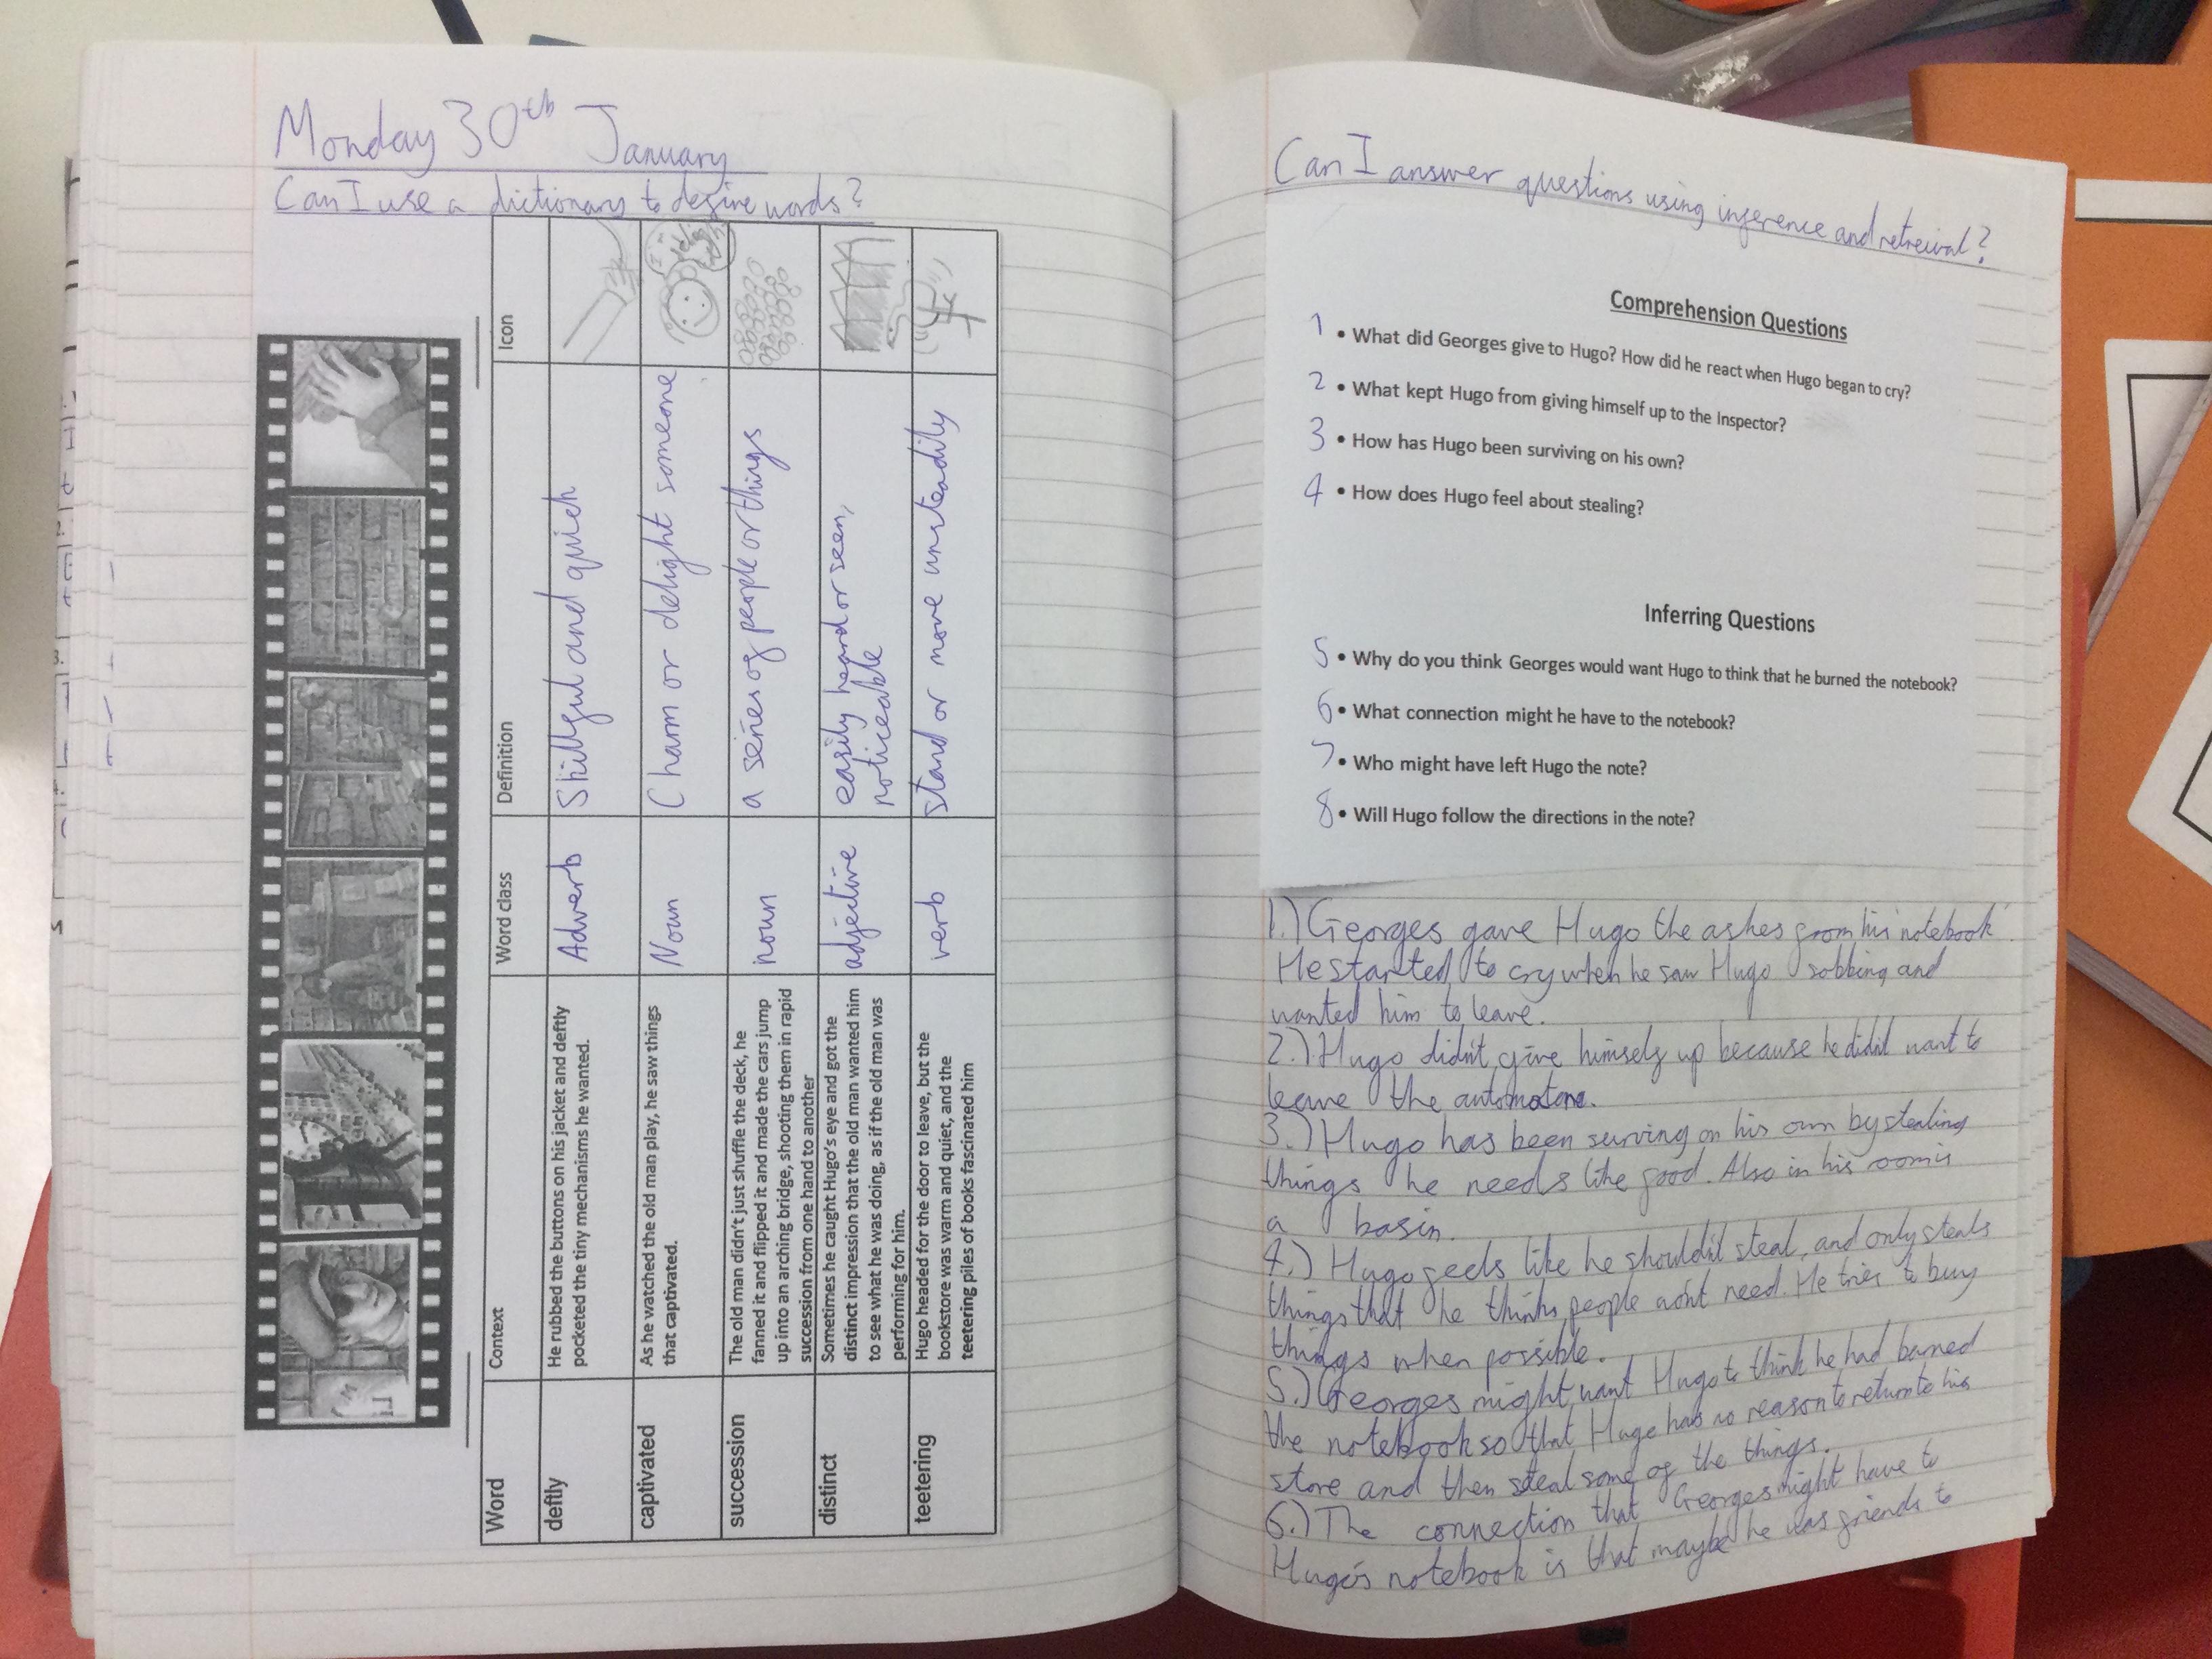 Monday 30th January
Can I use a dictionary to define words?
Word
Context
Word class
Definition
Icon
deftly
He rubbed the buttons on his jacket and deftly
pocketed the tiny mechanisms he wanted.
Adverb
Skillful and quick
captivated
As he watched the old man play, he saw things
that captivated.
Noun
Charm or delight someone
succession
The old man didn't just shuffle the deck, he
fanned it and flipped it and made the cars jump
up into an arching bridge, shooting them in rapid
succession from one hand to another
noun
a series of people or things
distinct
Sometimes he caught Hugo's eye and got the
distinct impression that the old man wanted him
to see what he was doing, as if the old man was
performing for him.
adjective
easily heard or seen,
noticeable
teetering
Hugo headed for the door to leave, but the
bookstore was warm and quiet, and the
teetering piles of books fascinated him
verb
stand or move unsteadily
Can I answer questions using inference and retreival?
Comprehension Questions
1 • What did Georges give to Hugo? How did he react when Hugo began to cry?
2 • What kept Hugo from giving himself up to the Inspector?
3 • How has Hugo been surviving on his own?
4 • How does Hugo feel about stealing?
Inferring Questions
5 • Why do you think Georges would want Hugo to think that he burned the notebook?
6 • What connection might he have to the notebook?
7 • Who might have left Hugo the note?
8 • Will Hugo follow the directions in the note?
1.) Georges gave Hugo the ashes from his notebook.
He started to cry when he saw Hugo sobbing and
wanted him to leave.
2.) Hugo didn't give himself up because he didn't want to
leave the automatone.
3.) Hugo has been surving on his own by stealing
things he needs like food. Also in his room is
a basin.
4.) Hugo feels like he shouldn't steal, and only steals
things that he thinks people won't need. He tries to buy
things when possible.
5.) Georges might want Hugo to think he had burned
the notebook so that Hugo has no reason to return to his
store and then steal some of the things.
6.) The connection that Georges might have to
Hugo's notebook is that maybe he was friends to